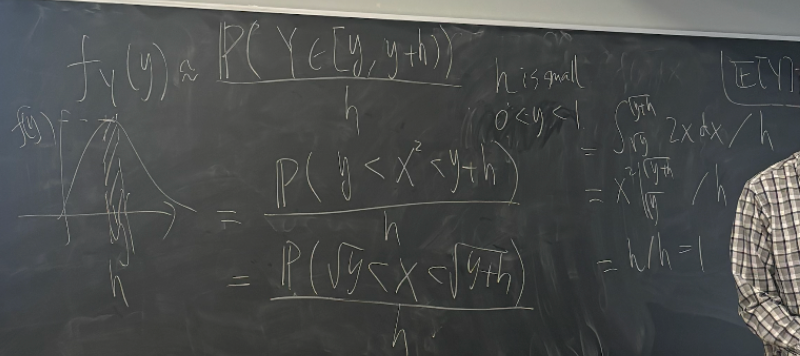 f_Y(y) ≈ P(Y ∈ [y, y+h)) / h
h is small
0 < y < 1
f(y)
h
= P(y < X² < y+h) / h
= P(√y < X < √(y+h)) / h
= ∫_{√y}^{√(y+h)} 2x dx / h
= x² |_{√y}^{√(y+h)} / h
= h/h = 1
E[Y]=